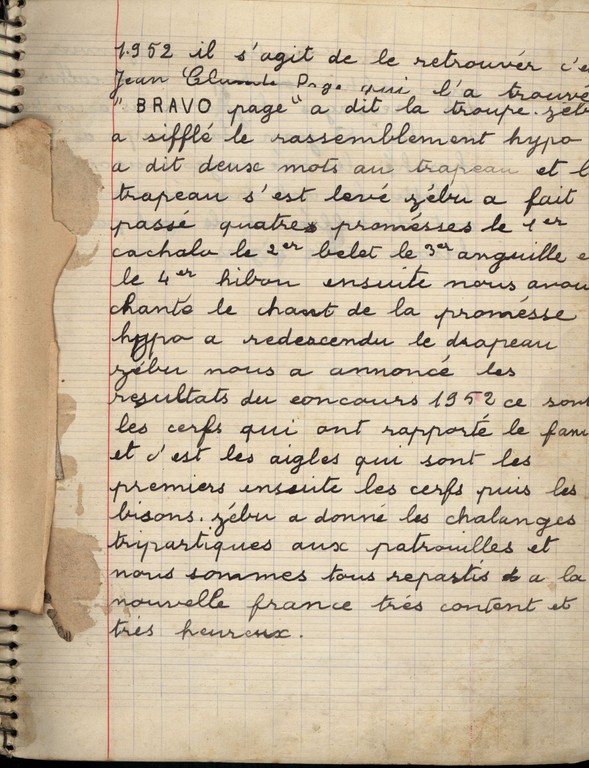 1.952 il s'agit de le retrouver c'e
Jean Claude Page qui l'a trouvé
" BRAVO page " a dit la troupe. zéb
a sifflé le rassemblement hypo
a dit deux mots au trapeau et l
trapeau s'est levé zébu a fait
passé quatre promésses le 1er
cachalo le 2er belet le 3er anguille e
le 4er hibou ensuite nous avou
chanté le chant de la promésse
hypo a redescendu le drapeau
zébu nous a annoncé les
resultats du concours 1952 ce son
les cerfs qui ont rapporté le fan
et c'est les aigles qui sont les
premiers ensuite les cerfs puis les
bisons. zébu a donné les chalanges
tripartiques aux patrouilles et
nous sommes tous repartis a la
nouvelle france trés content et
trés heureux.